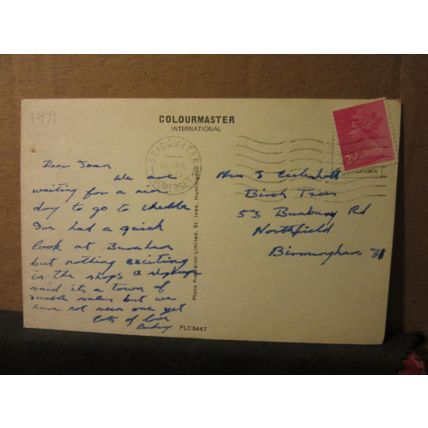 1971
COLOURMASTER
INTERNATIONAL
BRIDGWATER
SOMERSET
Dear Joan
We are
waiting for a nice
day to go to Cheddar
I've had a quick
look at Burnham
but nothing exciting
in the shops a
said its a town of
sales but we
have not seen one yet
Lots of love
Miss J
Birch Trees
53 Bunbury Rd
Northfield
Birmingham 31
Photo Precision Limited, St. Ives, Huntingdon
PLC6447